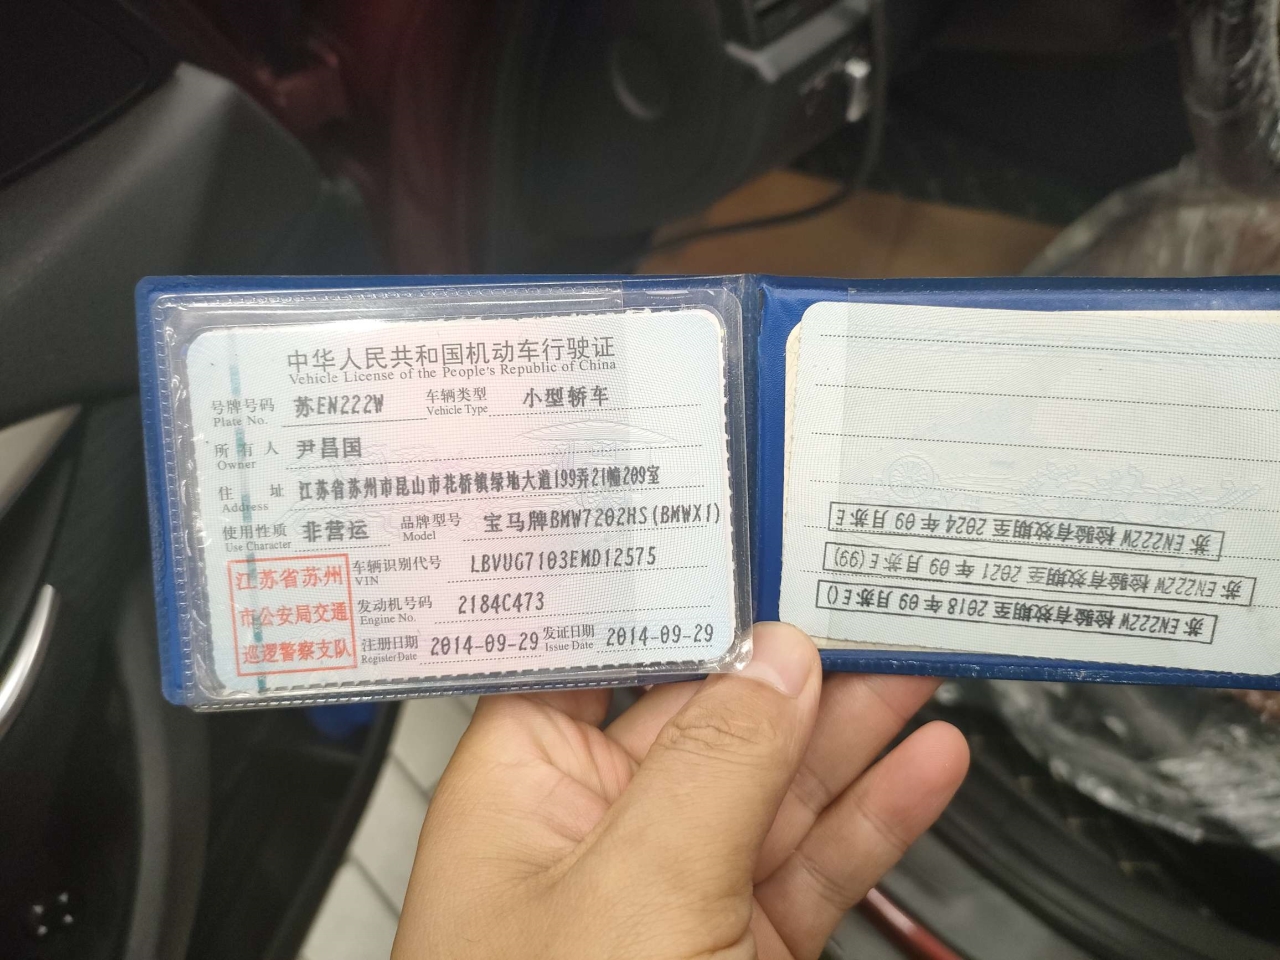 中华人民共和国机动车行驶证
Vehicle License of the People's Republic of China
号牌号码 苏EN222W 车辆类型 小型轿车
Plate No. Vehicle Type
所有人 尹昌国
Owner
住址 江苏省苏州市昆山市花桥镇绿地大道199弄21幢209室
Address
使用性质 非营运 品牌型号 宝马牌BMW7202HS(BMWX1)
Use Character Model
江苏省苏州
市公安局交通
巡逻警察支队
车辆识别代号 LBVUG7103EMD12575
VIN
发动机号码 2184C473
Engine No.
注册日期 2014-09-29 发证日期 2014-09-29
Register Date Issue Date
苏EN222W 检验有效期至 2018 年 09 月苏E()
苏EN222W 检验有效期至 2021 年 09 月苏E(99)
苏EN222W 检验有效期至 2024 年 09 月苏E